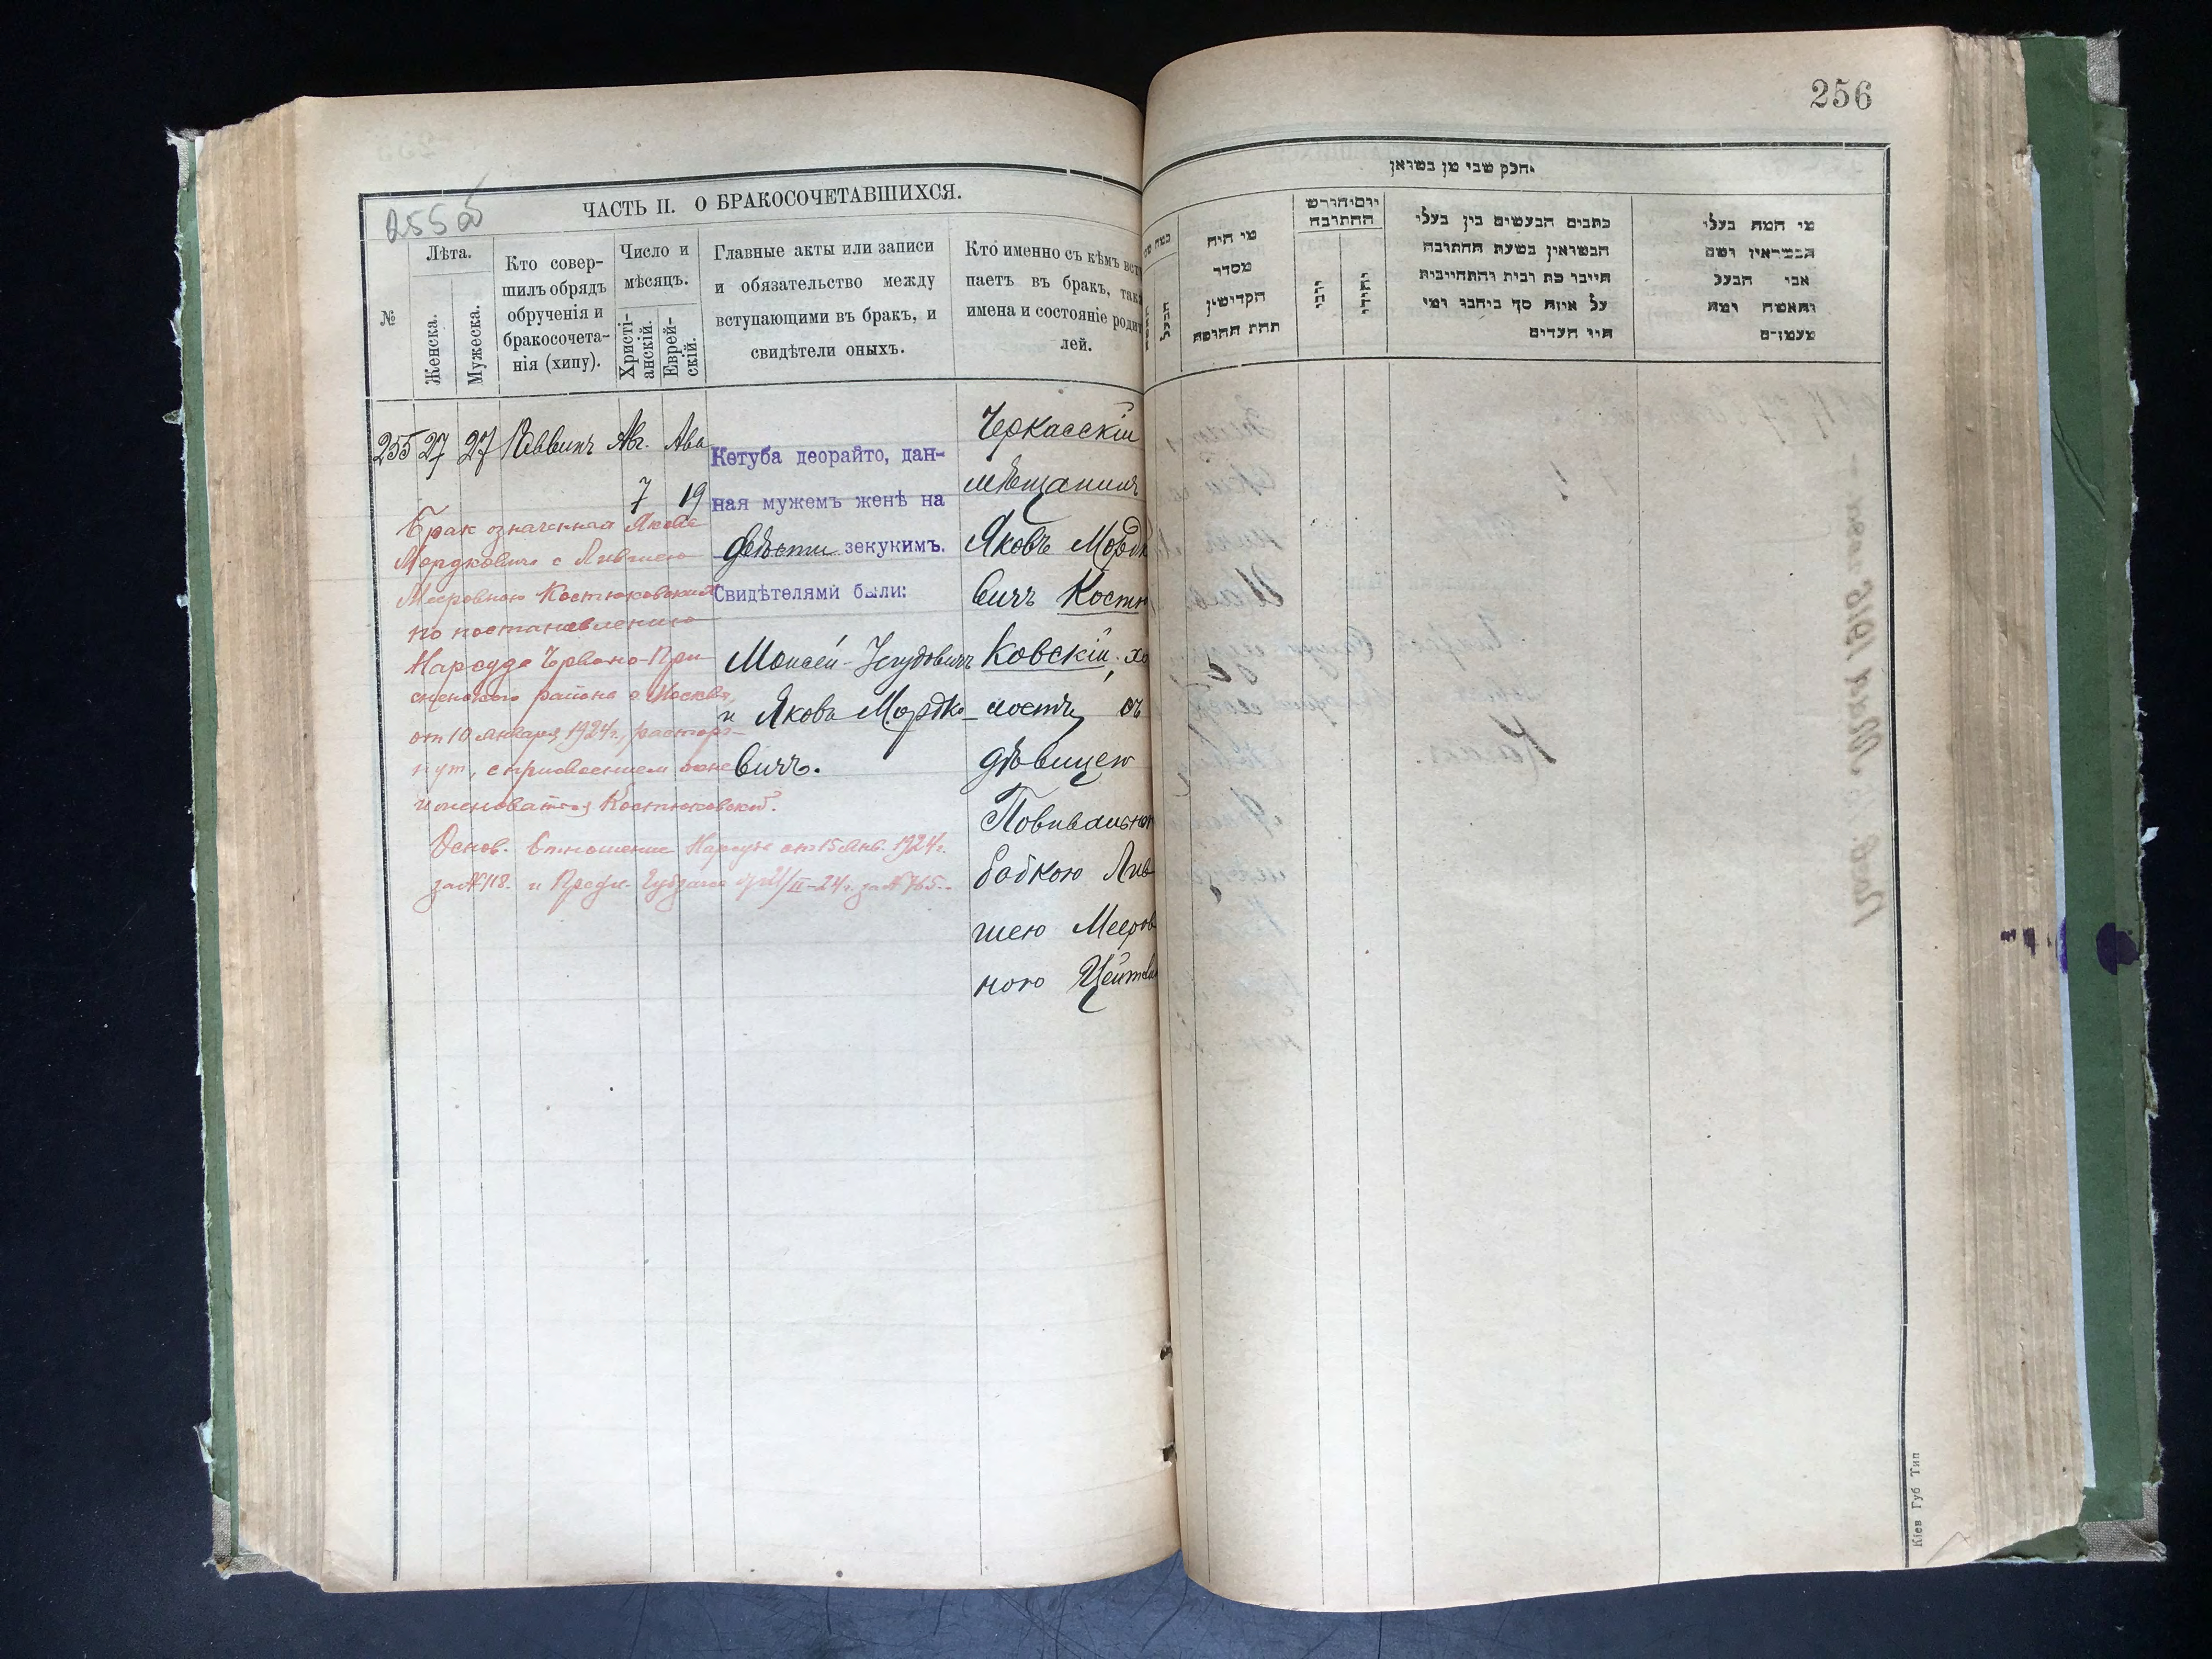 255 об
ЧАСТЬ II. О БРАКОСОЧЕТАВШИХСЯ.
№
Лѣта.
Женска.
Мужеска.
Кто совер-
шилъ обрядъ
обрученія и
бракосочета-
нія (хипу).
Число и
мѣсяцъ.
Христі-
анскій.
Еврей-
скій.
Главные акты или записи
и обязательство между
вступающими въ бракъ, и
свидѣтели оныхъ.
Кто именно съ кѣмъ всту
паетъ въ бракъ, такж
имена и состояніе родит
лей.
255 27 27 Раввинъ Авг. Ава
7 19
Кетуба деорайто, дан-
ная мужемъ женѣ на
двѣсти зекукимъ.
Свидѣтелями были:
Моисей-
и Яковъ Мордко-
вичъ.
Черкасскій
мѣщанинъ
Яковъ Мордк
вичъ Костю
ковскій, хо
лостъ, съ
дѣвицею
Повивальною
бабкою Лив
шею Мееров
ною Цейтли
Брак означенная Якова
Мордковича с Лившею
Мееровною Костюковский
по постановлению
Нарсуда Червоно-Пре-
сненского района г. Москвы,
от 10 января 1924 г., расторг-
нут, с присвоением жене
именоваться Костюковской.
Основ. Отношение Нарсуда от 15 Янв. 1924 г.
за № 118. и Губзагса II-24 г. за № 765.
256
חלק שני מן נשואין.
מי היה
מסדר
הקדישין
תחת החופה
יום וחודש
החתונה
נוצרי
יהודי
כתבים הנעשים בין בעלי
הנשואין בשעת החתונה
חייבו כת רבית והתחייבות
על איזה סך ביחבו ומי
היו העדים
מי המה בעלי
הנשואין ושם
אבי הבעל
והאשה ומה
מעמדם
Кіев Губ Тип